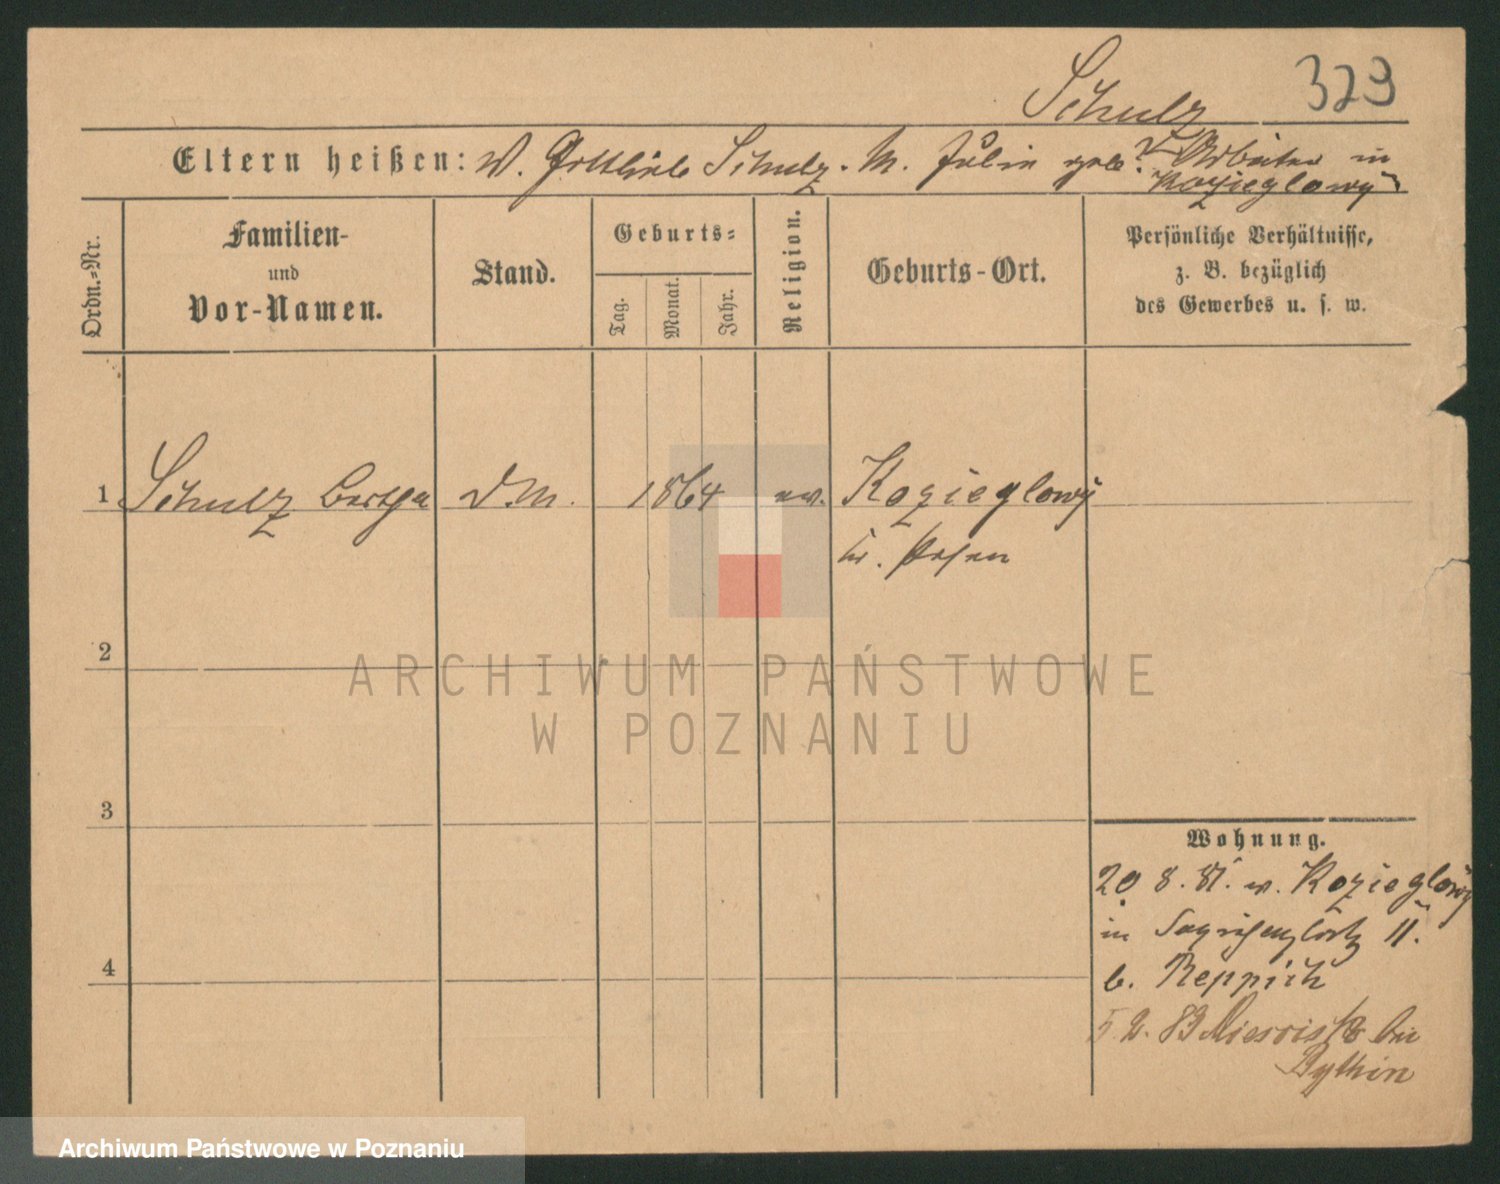 Schulz 323
Eltern heißen: V. Gottlieb Schulz. M. Julie geb. ? V. Arbeiter in
Kozieglowy
Ordn.-Nr.
Familien-
und
Vor-Namen.
Stand.
Geburts-
Tag.
Monat.
Jahr.
Religion.
Geburts-Ort.
Persönliche Verhältnisse,
z. B. bezüglich
des Gewerbes u. s. w.
1 Schulz Bertha D.M. 1864 ev. Kozieglowy
Kr. Posen
2
3
4
Wohnung.
20 8. 81. v. Kozieglowy
in II.
b. Reppich
5 2. 83 bei
Bythin
ARCHIWUM PAŃSTWOWE
W POZNANIU
Archiwum Państwowe w Poznaniu